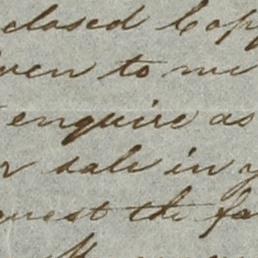 closed Copy
ven to me
enquire as
r sale in y
quest the fa